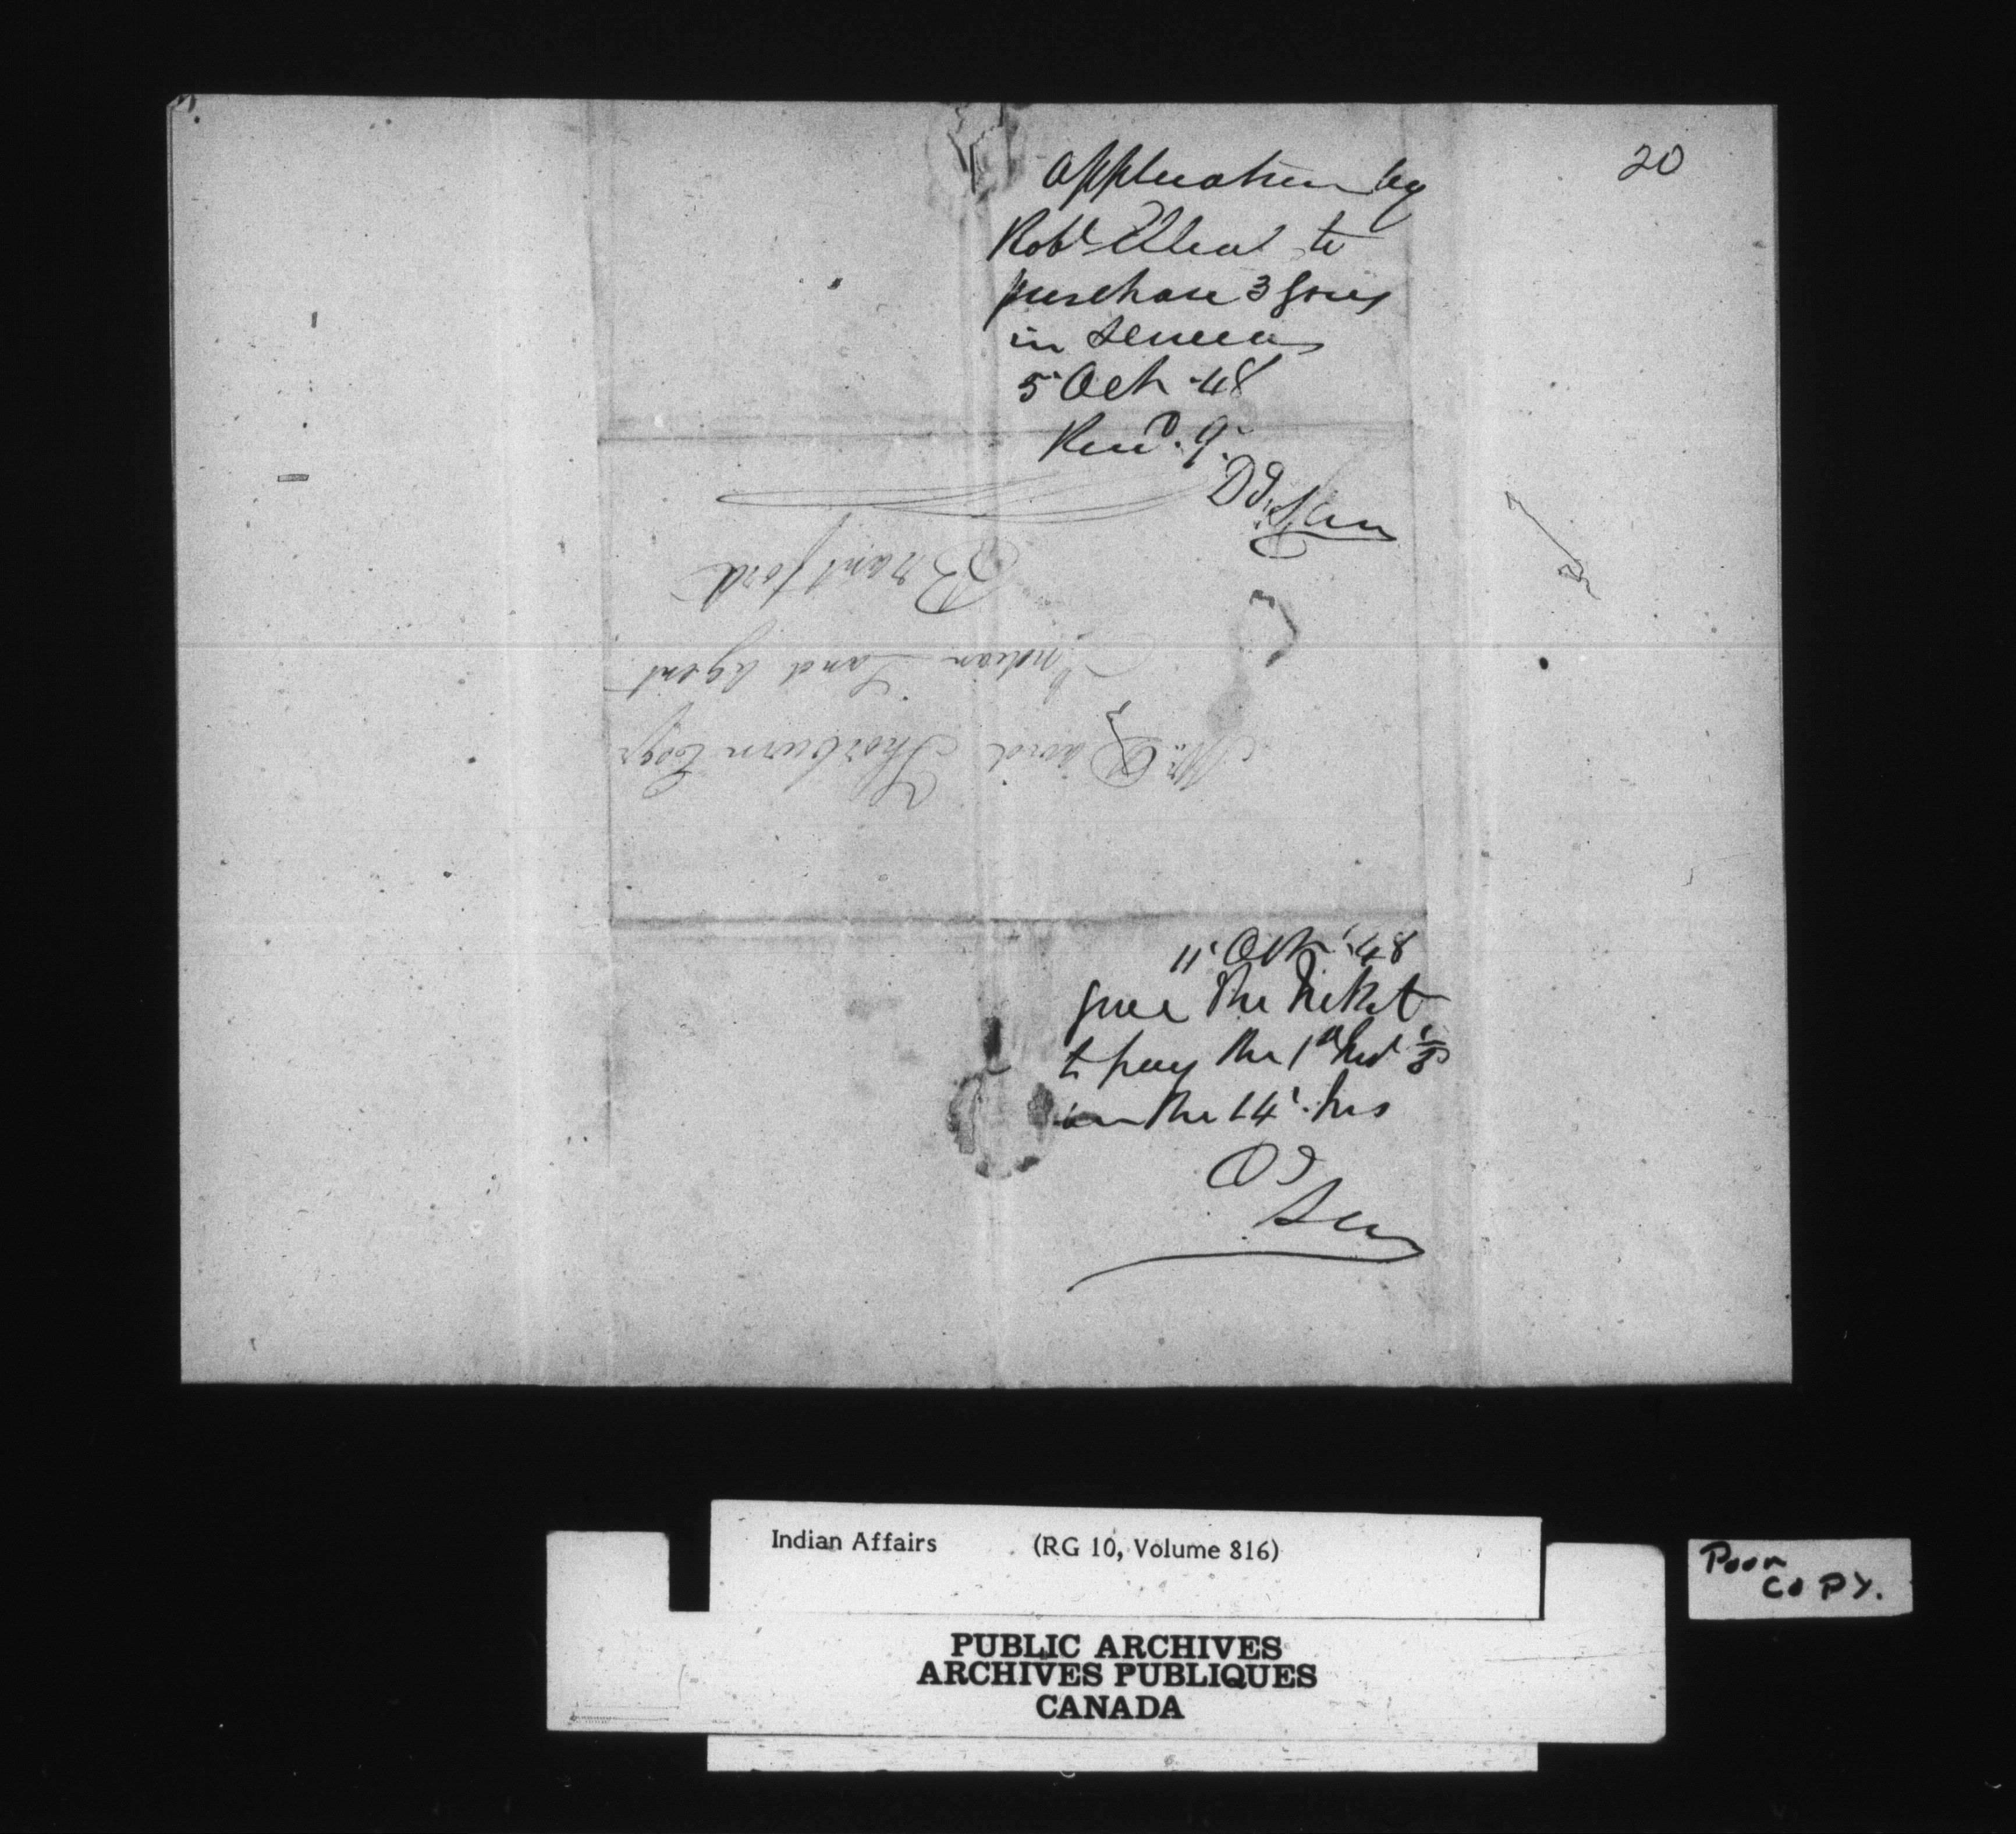 20
Application by
Robt to
purchase 3
in Seneca
5 Oct 48
Recd. 9
Mr. David Thorburn Esqr
Indian Land Agent
Brantford
11 Oct '48
give the ticket
to pay the 1st
in the 14
Indian Affairs (RG 10, Volume 816)
PUBLIC ARCHIVES
ARCHIVES PUBLIQUES
CANADA
Poor
COPY.